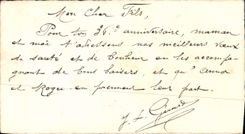 Mon Cher Fils,
Pour ton 36e anniversaire, maman
et moi t'adressons nos meilleurs vœux
de santé et de bonheur en les accompa-
gnant de bons baisers, et qu'
et en prennent leur part.